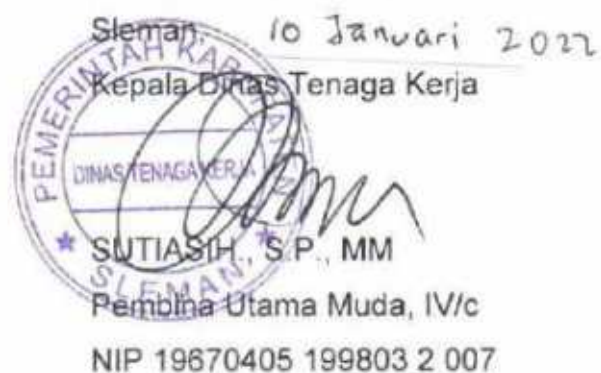 Sleman, 10 Januari 2022
Kepala Dinas Tenaga Kerja
PEMERINTAH KABUPATEN
DINAS TENAGA KERJA
SLEMAN
SUTIASIH, S.P., MM
Pembina Utama Muda, IV/c
NIP 19670405 199803 2 007